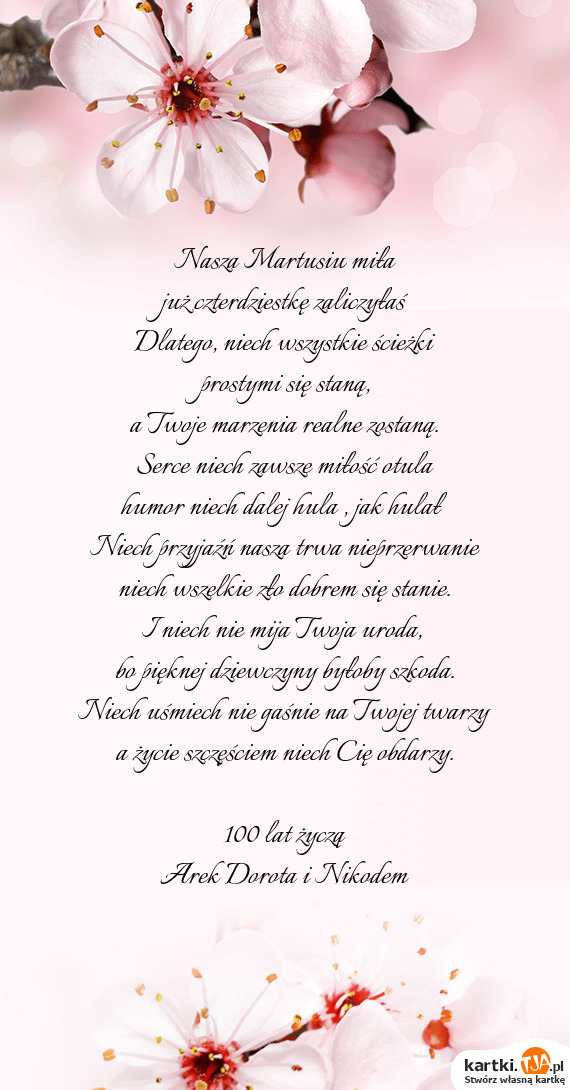 Nasza Martusiu miła
już czterdziestkę zaliczyłaś
Dlatego, niech wszystkie ścieżki
prostymi się staną,
a Twoje marzenia realne zostaną.
Serce niech zawsze miłość otula
humor niech dalej hula , jak hulał
Niech przyjaźń nasza trwa nieprzerwanie
niech wszelkie zło dobrem się stanie.
I niech nie mija Twoja uroda,
bo pięknej dziewczyny byłoby szkoda.
Niech uśmiech nie gaśnie na Twojej twarzy
a życie szczęściem niech Cię obdarzy.
100 lat życzą
Arek Dorota i Nikodem
kartki.TJA.pl
Stwórz własną kartkę